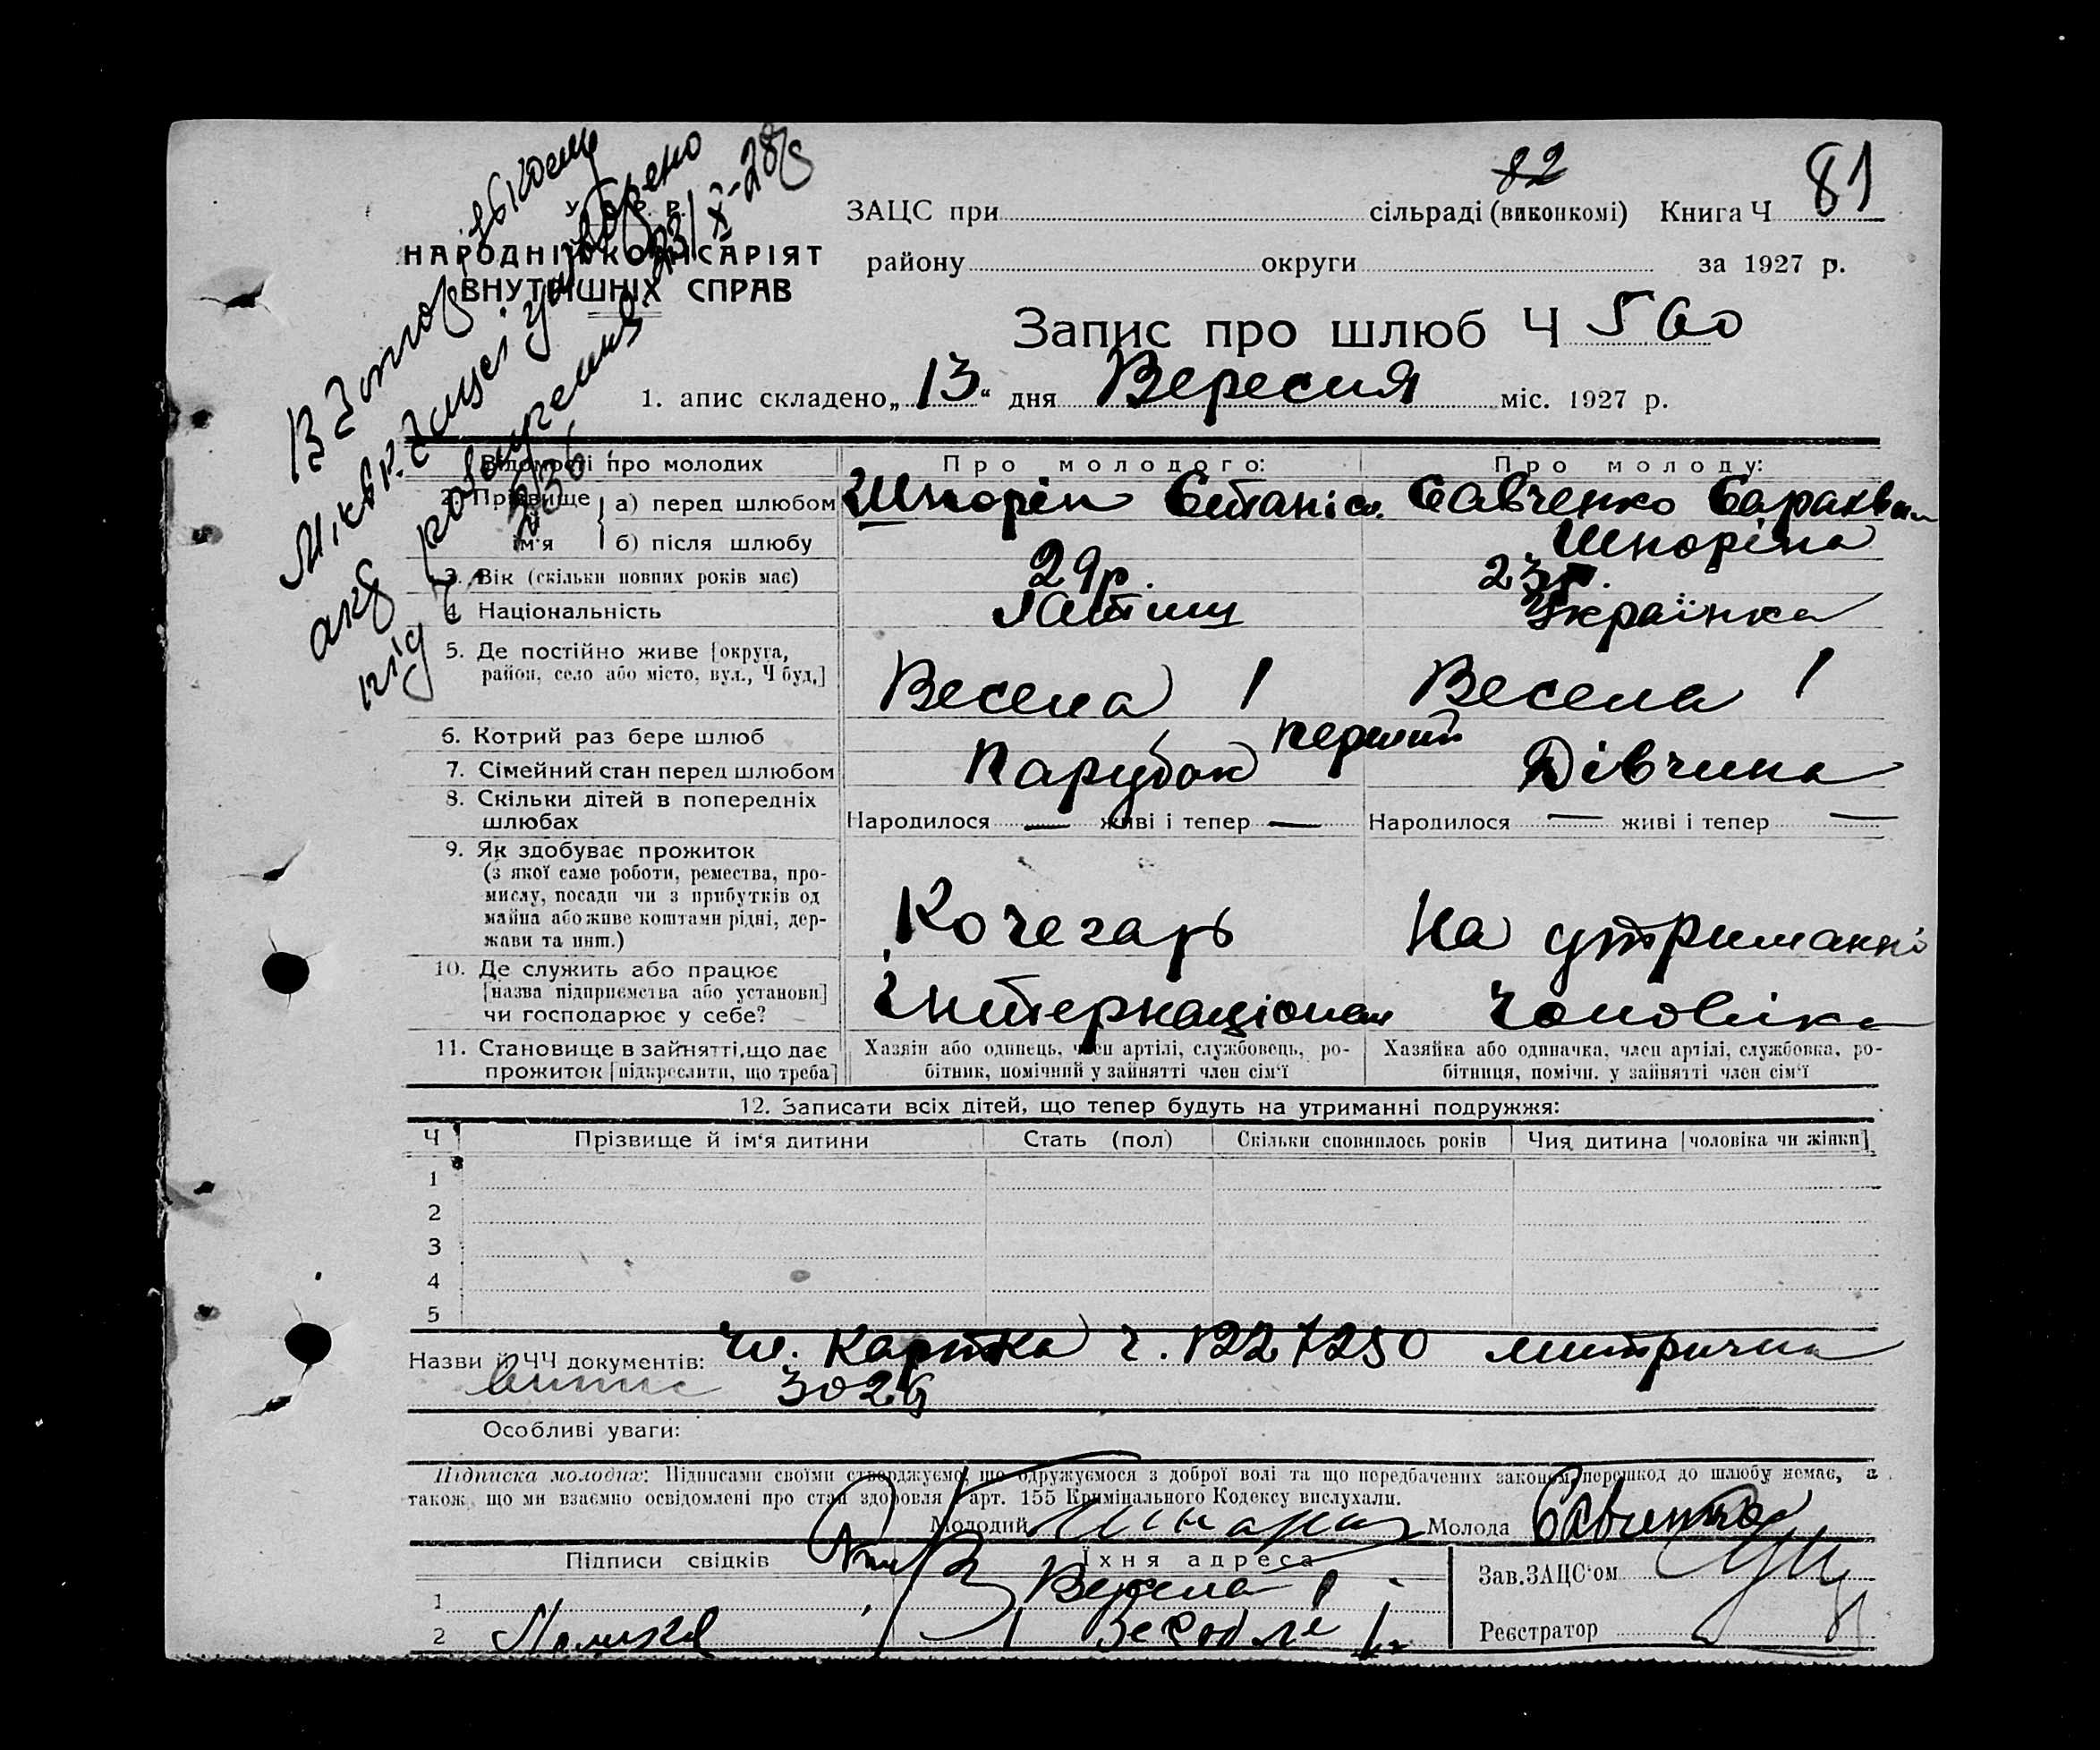 82 81
ЗАЦС при сільраді (виконкомі) Книга Ч
У. С. Р. Р.
НАРОДНІЙ КОМІСАРІЯТ
ВНУТРІШНІХ СПРАВ
району округи за 1927 р.
Запис про шлюб Ч 560
1. апис складено „13“ дня Вересня міс. 1927 р.
Відомості про молодих Про молодого: Про молоду:
2. Прізвище ім'я а) перед шлюбом Шпорін Станісл. Савченко
б) після шлюбу Шпоріна
3. Вік (скільки повних років має) 29р. 23р.
4. Національність Латиш Українка
5. Де постійно живе [округа,
район, село або місто, вул., Ч буд.]
Весела 1 Весела 1
6. Котрий раз бере шлюб перший
7. Сімейний стан перед шлюбом Парубок Дівчина
8. Скільки дітей в попередніх
шлюбах Народилося — живі і тепер — Народилося — живі і тепер —
9. Як здобуває прожиток
(з якої саме роботи, ремества, про-
мислу, посади чи з прибутків од
майна або живе коштами рідні, дер-
жави та инш.)
Кочегарь На утриманні
10. Де служить або працює
[назва підприємства або установи]
чи господарює у себе?
Інтернаціонал Чоловіка
11. Становище в зайнятті, що дає
прожиток [підкреслити, що треба]
Хазяїн або одинець, член артілі, службовець, ро-
бітник, помічний у зайнятті член сім'ї
Хазяйка або одиначка, член артілі, службовка, ро-
бітниця, помічн. у зайнятті член сім'ї
12. Записати всіх дітей, що тепер будуть на утриманні подружжя:
Ч Прізвище й ім'я дитини Стать (пол) Скільки сповнилось років Чия дитина [чоловіка чи жінки]
1
2
3
4
5
Назви й ЧЧ документів: чл. Картка ч. 1227250 митрична
витис 3026
Особливі уваги:
Підписка молодих: Підписами своїми стверджуємо, що одружуємося з доброї волі та що передбачених законом перешкод до шлюбу немає, а
також що ми взаємно освідомлені про стан здоровля і арт. 155 Кримінального Кодексу вислухали.
Молодий Молода Савченко
Підписи свідків Їхня адреса Зав.ЗАЦС'ом
1 Весела 1
2 Реєстратор